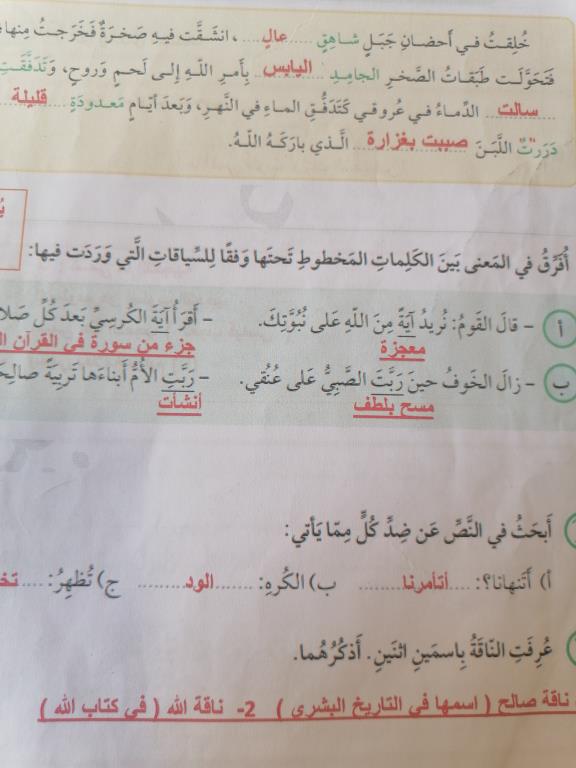 خُلِقتُ في أَحضانِ جَبَلٍ شاهِقٍ ....عالٍ....، انشَقَّت فيهِ صَخرَةٌ فَخَرَجتُ مِنها
فَتَحَوَّلَت طَبَقاتُ الصَّخرِ الجامِدِ ..اليابس.. بِأَمرِ اللّهِ إِلى لَحمٍ وَروحٍ، وَتَدَفَّقَتِ
....سالت.... الدِّماءُ في عُروقي كَتَدَفُّقِ الماءِ في النَّهرِ، وَبَعدَ أَيّامٍ مَعدودَةٍ ..قليلة..
دَرَرتُ اللَّبَنَ ..صببت بغزارة.. الَّذي بارَكَهُ اللّهُ.
أُفَرِّقُ في المَعنى بَينَ الكَلِماتِ المَخطوطِ تَحتَها وَفقًا لِلسِّياقاتِ الَّتي وَرَدَت فيها:
أ - قالَ القَومُ: نُريدُ آيَةً مِنَ اللّهِ عَلى نُبُوَّتِكَ. - أَقرَأُ آيَةَ الكُرسِيِّ بَعدَ كُلِّ
معجزة جزء من سورة في القرآن
ب - زالَ الخَوفُ حينَ رَبَّتَ الصَّبِيُّ عَلى عُنُقي. - رَبَّتِ الأُمُّ أَبناءَها تَربِيَةً
مسح بلطف أنشأت
أَبحَثُ في النَّصِّ عَن ضِدِّ كُلٍّ مِمّا يَأتي:
أ) أَتَنهانا؟: ....أتأمرنا........ ب) الكُرهِ: ......الود........ ج) تُظهِرُ: ....
عُرِفَتِ النّاقَةُ بِاسمَينِ اثنَينِ. أَذكُرُهُما.
ناقة صالح ( اسمها في التاريخ البشري ) 2- ناقة الله ( في كتاب الله )